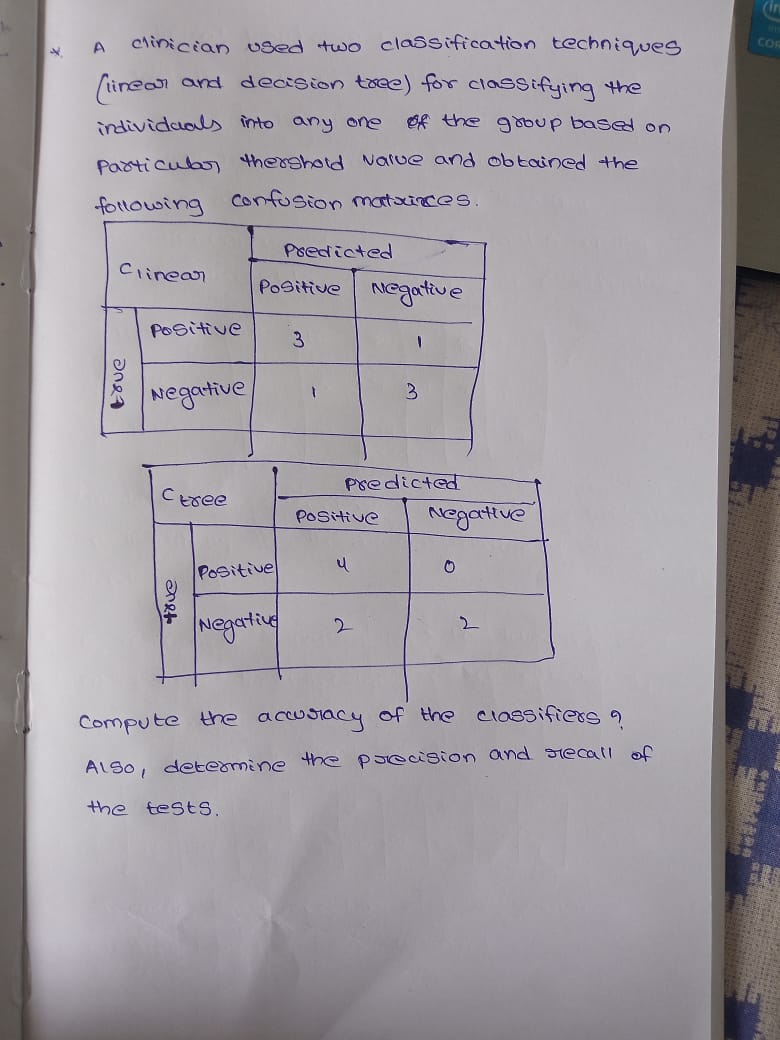 * A clinician used two classification techniques
(linear and decision tree) for classifying the
individuals into any one of the group based on
Particular thershold value and obtained the
following confusion matrixces.
Clinear
Predicted
Positive Negative
Positive 3 1
Negative 1 3
C tree
Predicted
Positive Negative
Positive 4 0
Negative 2 2
Compute the accuracy of the classifiers ?
Also, determine the precision and recall of
the tests.